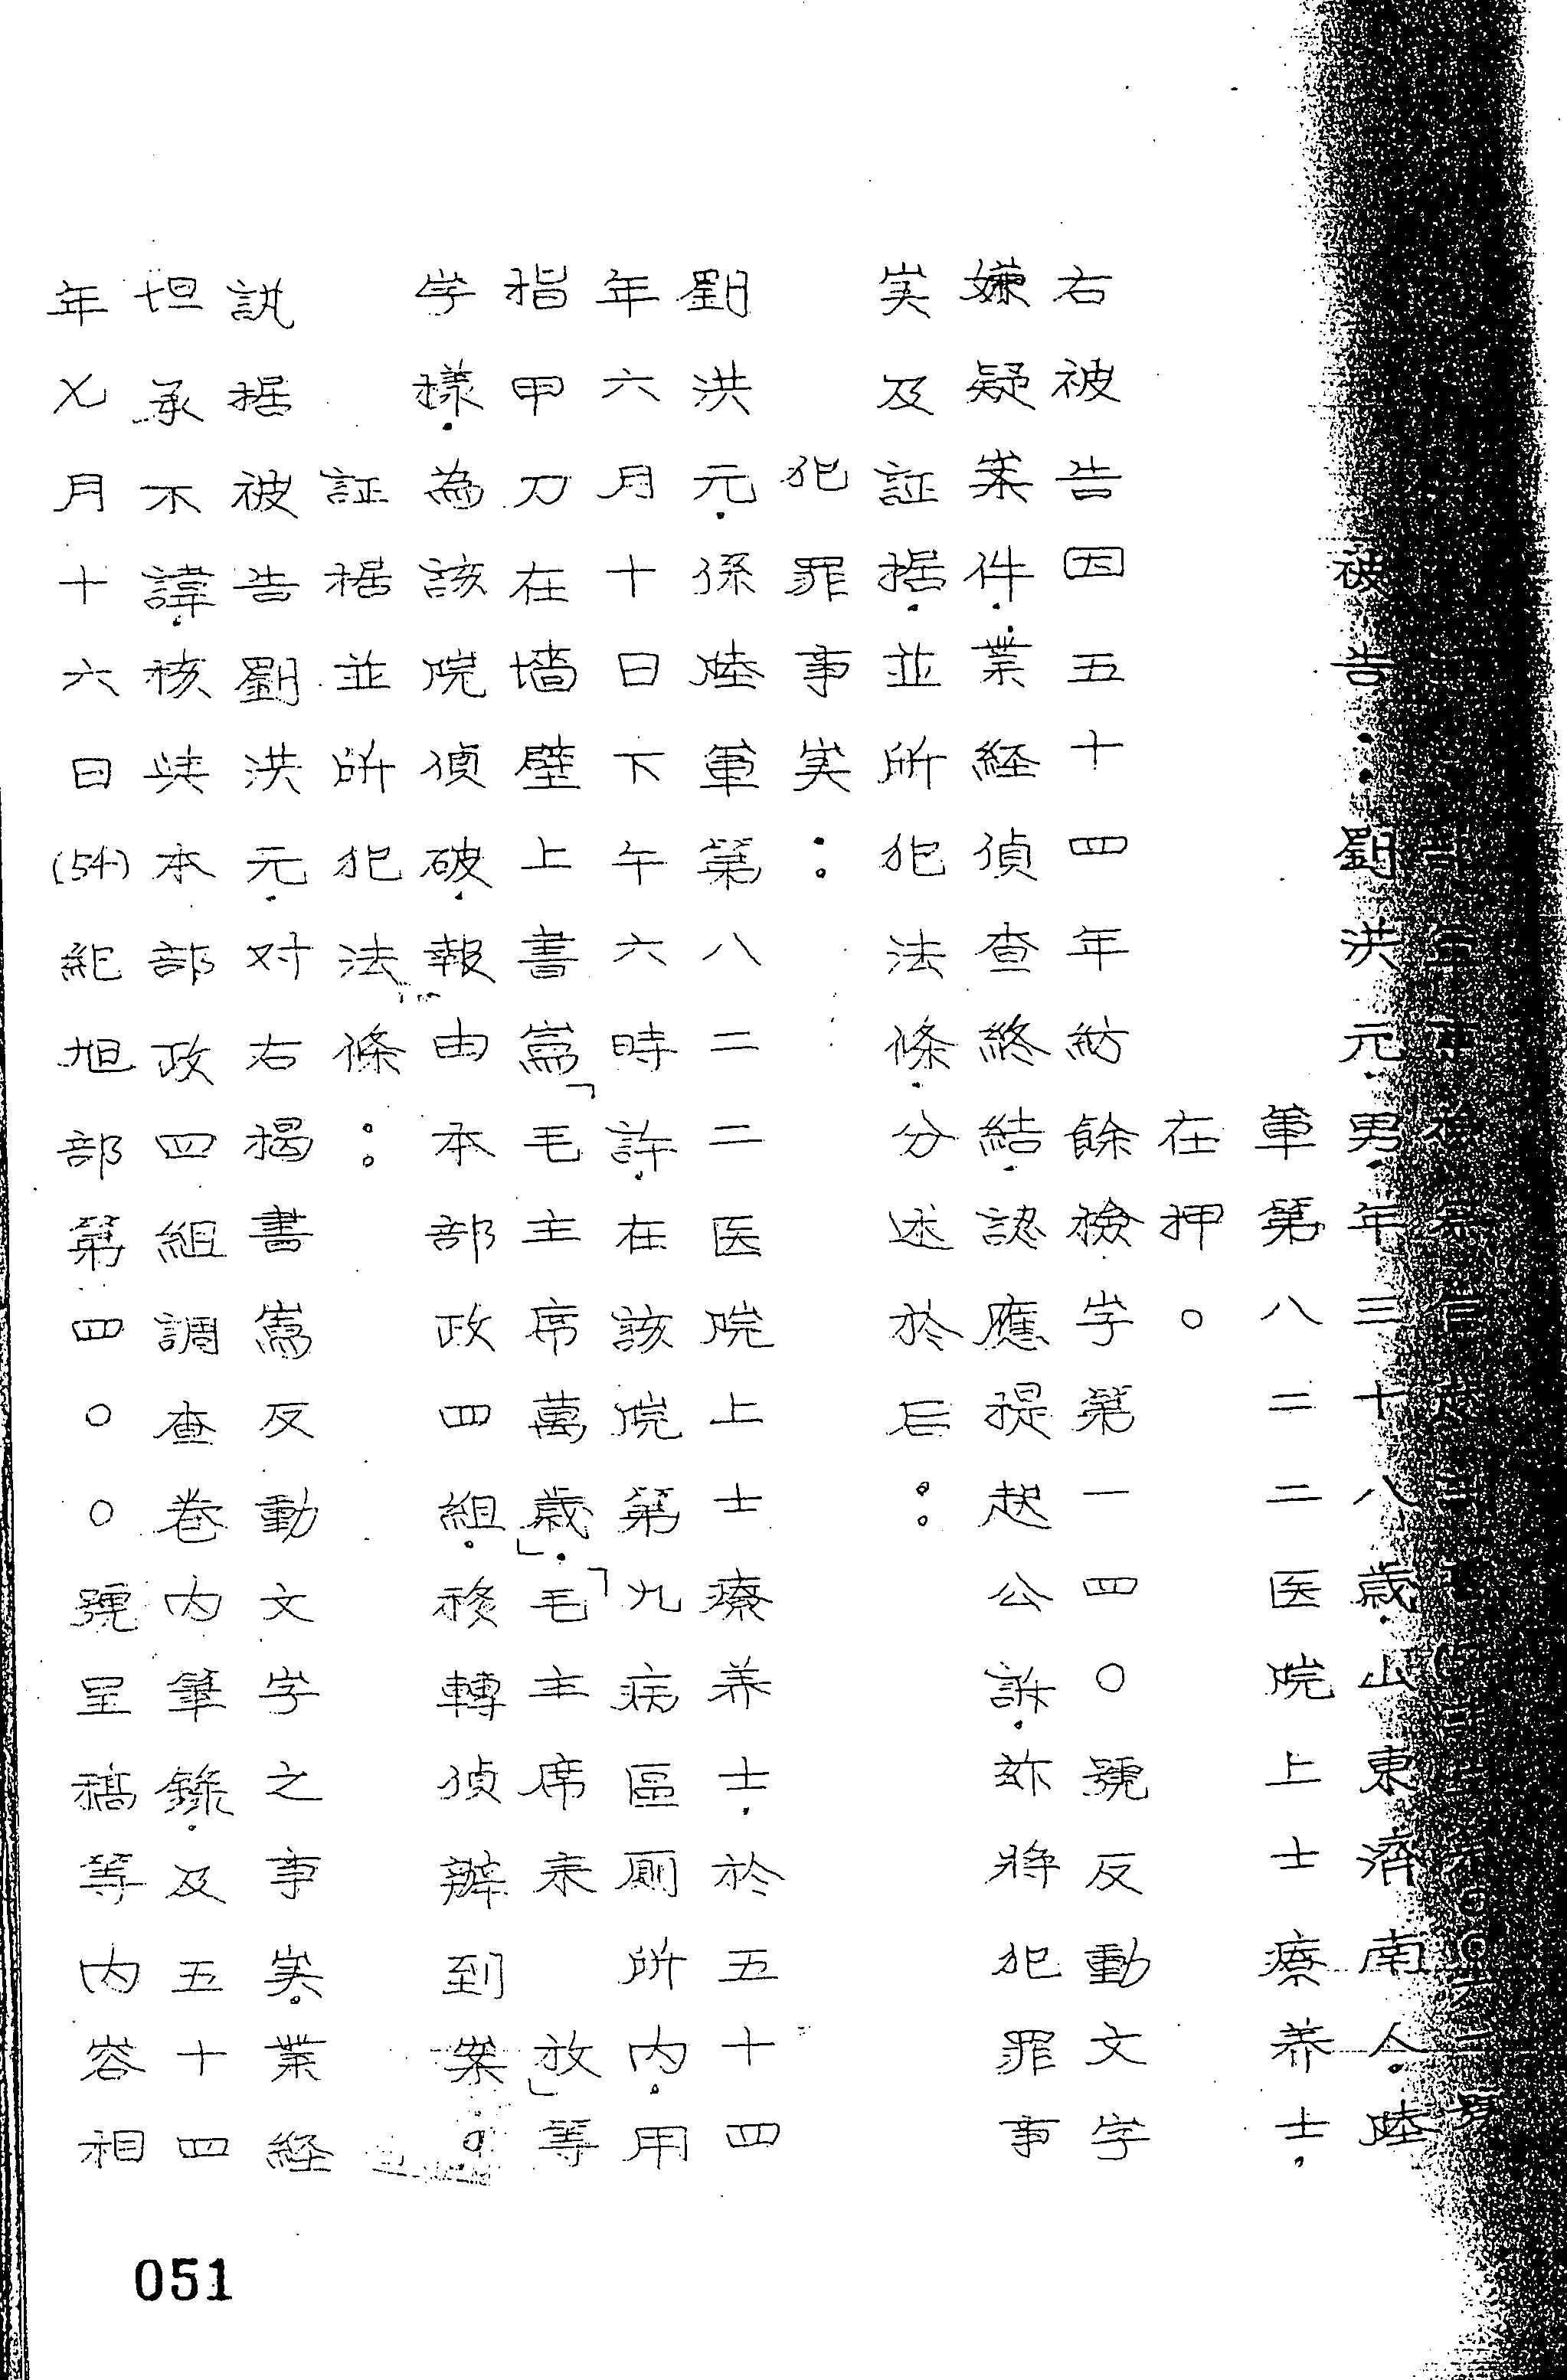 被告：劉洪元．男．年三十八歲．山東濟南人．陸
軍第八二二医院上士療养士．
在押。
右被告因五十四年紡餘檢字第一四〇號反動文字
嫌疑案件．業経偵查終結．認應提起公訴．玆將犯罪事
実及証据．並所犯法條．分述於后：
犯罪事実：
劉洪元．係陸軍第八二二医院上士療养士．於五十四
年六月十日下午六時許．在該院第九病區厠所内．用
指甲刀在墻壁上書寫「毛主席萬歲」．「毛主席未放」等
字樣．為該院偵破．報由本部政四組．移轉偵辦到案。
証据並所犯法條：
訊据被告劉洪元．对右揭書寫反動文字之事実．業経
坦承不諱．核與本部政四組調查卷内筆錄．及五十四
年九月十六日(54)紀旭部第四〇〇號呈稿等内容相
051